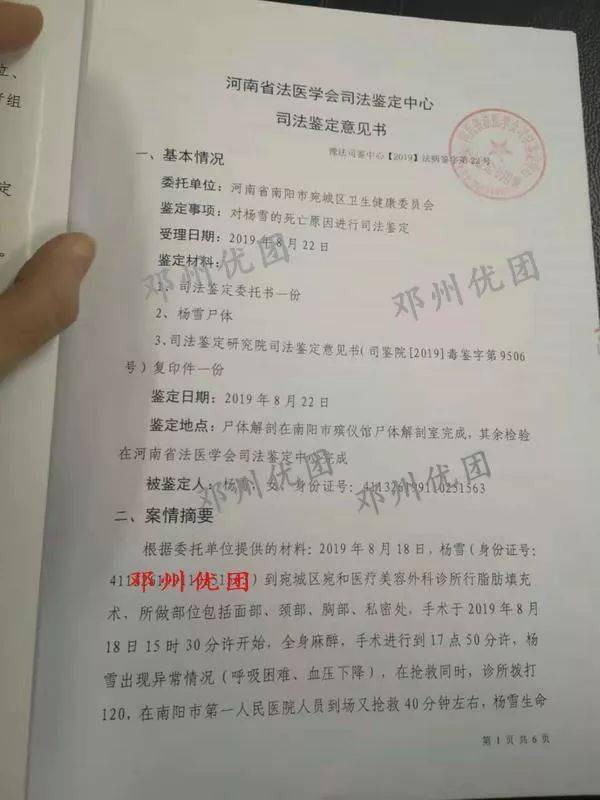 河南省法医学会司法鉴定中心
司法鉴定意见书
豫法司鉴中心【2019】法病鉴字第22号
一、基本情况
委托单位：河南省南阳市宛城区卫生健康委员会
鉴定事项：对杨雪的死亡原因进行司法鉴定
受理日期：2019年8月22日
鉴定材料：
1、司法鉴定委托书一份
2、杨雪尸体
3、司法鉴定研究院司法鉴定意见书(司鉴院[2019]毒鉴字第9506
号）复印件一份
鉴定日期：2019年8月22日
鉴定地点：尸体解剖在南阳市殡仪馆尸体解剖室完成，其余检验
在河南省法医学会司法鉴定中心完成
被鉴定人：杨雪，女，身份证号：411326199110251563
二、案情摘要
根据委托单位提供的材料：2019年8月18日，杨雪（身份证号：
）到宛城区宛和医疗美容外科诊所行脂肪填充
术，所做部位包括面部、颈部、胸部、私密处，手术于2019年8月
18日15时30分许开始，全身麻醉，手术进行到17点50分许，杨
雪出现异常情况（呼吸困难、血压下降），在抢救同时，诊所拨打
120，在南阳市第一人民医院人员到场又抢救40分钟左右，杨雪生命
第1页共6页
邓州优团
邓州优团
邓州优团
邓州优团
邓州优团